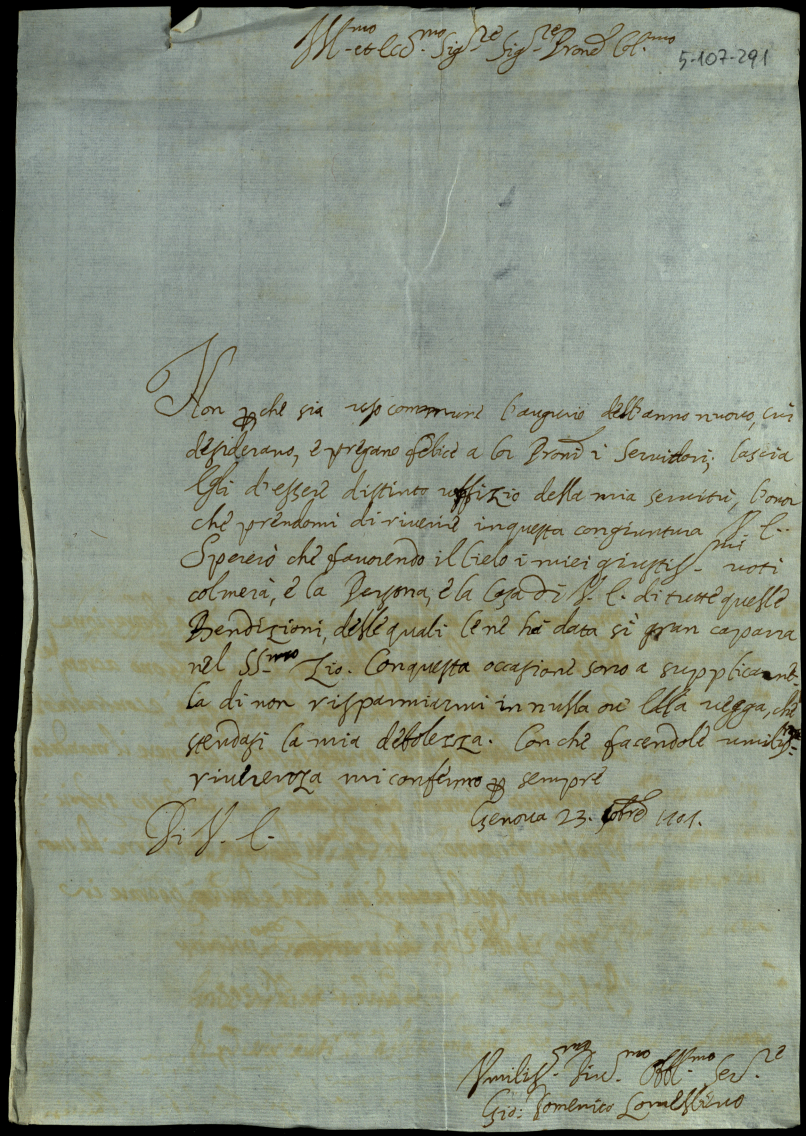 Ill.mo et Ecc.mo Sig.re Sig.re Prone Col.mo
5-107-291
Non p che sia uso commune l'augurio dell'anno nuovo, cui
desiderano, e pregano felice a lor Proni i Servidori; lascia
Egli d'essere distinto uffizio della mia servitù, l'onor
che prendomi di riverire in questa congiuntura V. E.
Spererò che favorendo il Cielo i miei giustiss.mi voti
colmerà, e la Persona, e la Casa di V. E. di tutte quelle
Benedizioni, delle quali le ne ha data sì gran caparra
nel SS.mo Zio. Con questa occasione sono a supplicar-
la di non risparmiarmi in nulla ove Ella vegga, che
stendasi la mia debolezza. Con che facendole umiliss.ma
riverenza mi confermo p sempre
Genova 23. 1701.
Di V. E.
Umiliss.mo Div.mo Obbl.mo Ser.re
Gio: Domenico